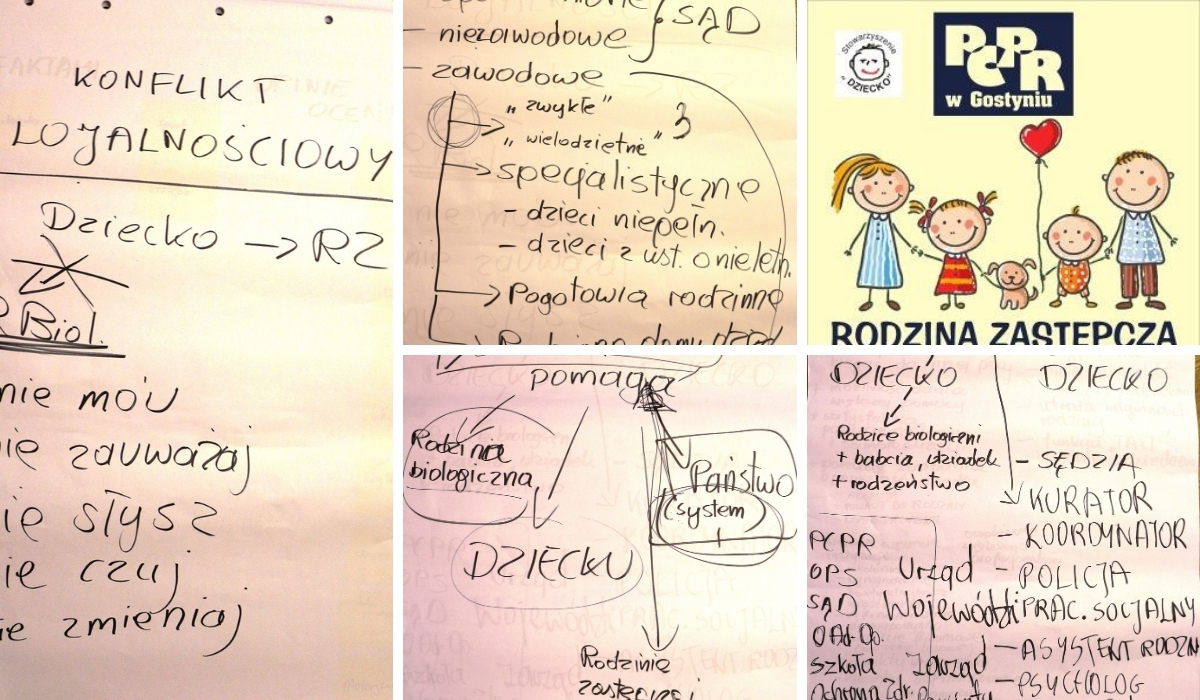 KONFLIKT
LOJALNOŚCIOWY
Dziecko → RZ
Biol.
nie mów
nie zauważaj
nie słysz
nie czuj
nie zmieniaj
- niezawodowe
SĄD
- zawodowe
„zwykłe”
„wielodzietne” 3
specjalistyczne
- dzieci niepełn.
- dzieci z ust. o nieletn.
Pogotowia rodzinne
Stowarzyszenie
"DZIECKO"
PCPR
w Gostyniu
RODZINA ZASTĘPCZA
pomaga
Rodzina
biologiczna
Państwo
(system)
DZIECKU
Rodzinie
zastępczej
DZIECKO
Rodzice biologiczni
+ babcia, dziadek
+ rodzeństwo
PCPR
OPS
SĄD
szkoła
Ochrona Zdr.
Urząd
Wojewódzki
Zarząd
Powiatu
DZIECKO
- SĘDZIA
KURATOR
- KOORDYNATOR
- POLICJA
PRAC. SOCJALNY
- ASYSTENT RODZIN
- PSYCHOLOG